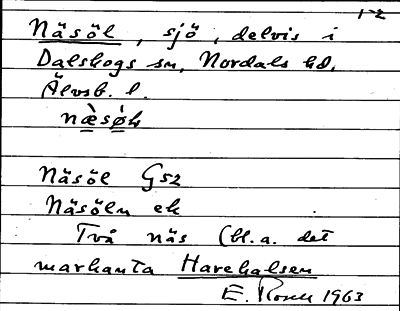 1-2
Näsöl, sjö, delvis i
Dalskogs sn, Nordals hd,
Älvsb. l.
Näsöl G52
Näsöln ek
Två näs (bl.a. det
markanta Harehalsen
E. Rosell 1963